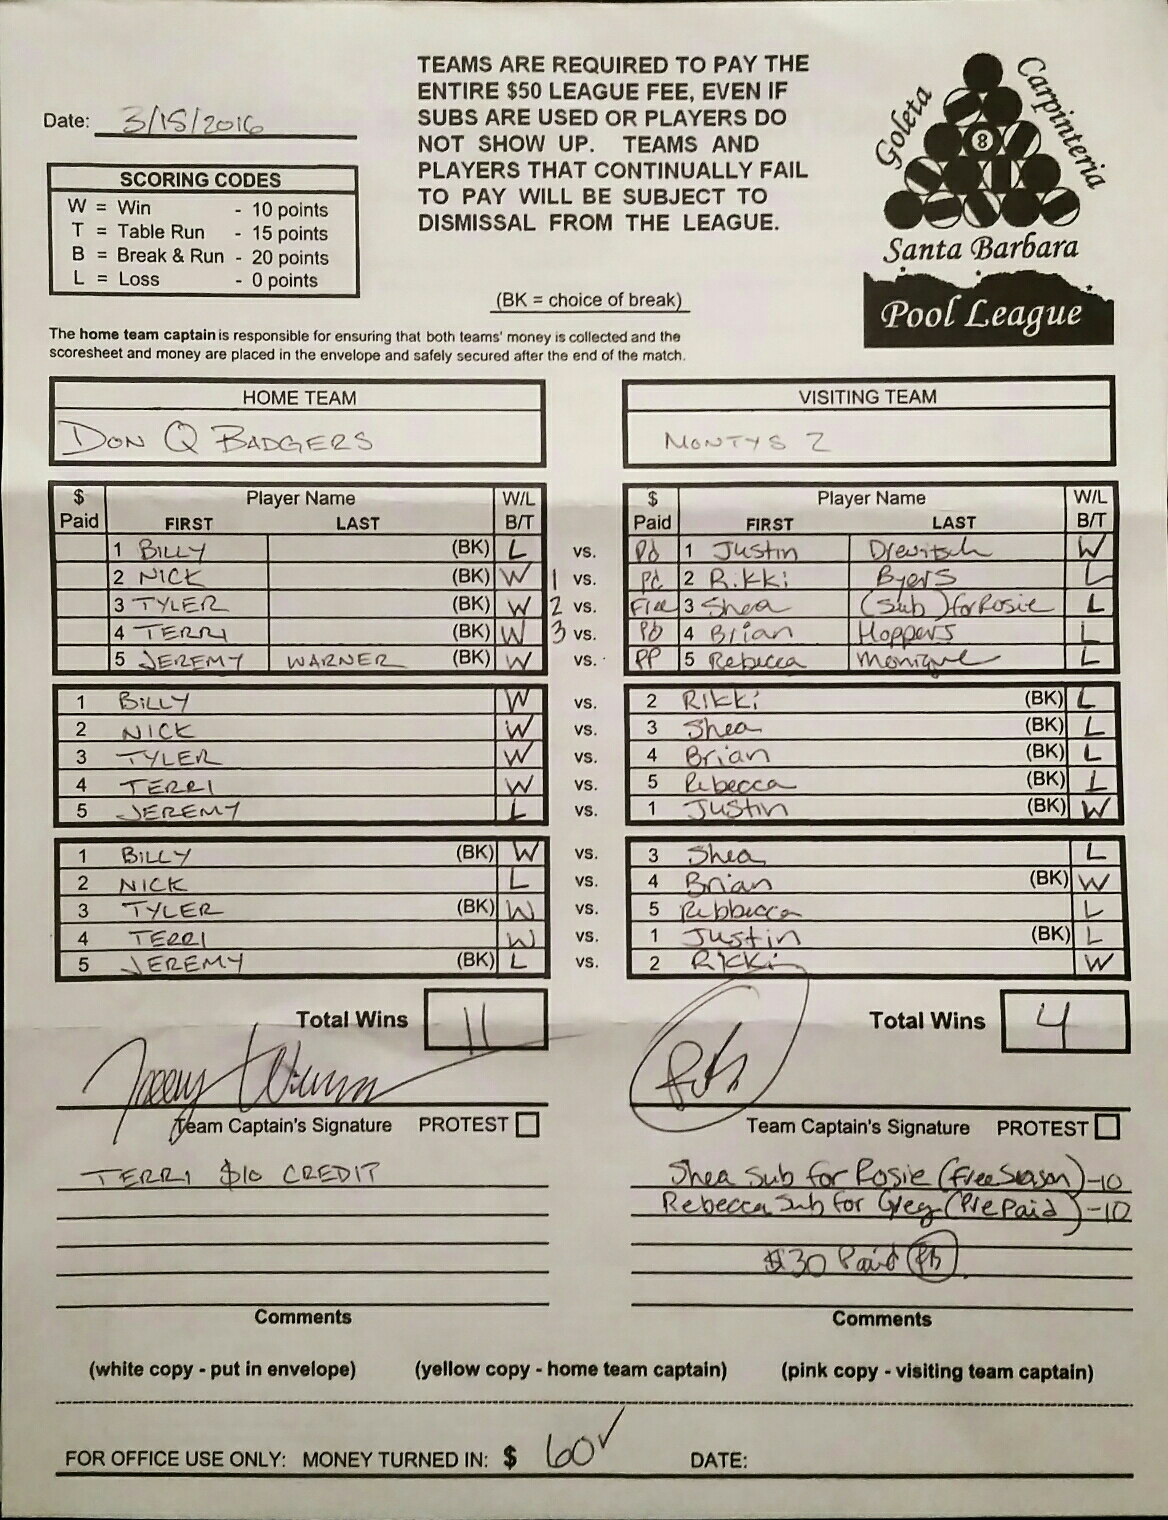 Date: 3/15/2016
TEAMS ARE REQUIRED TO PAY THE
ENTIRE $50 LEAGUE FEE, EVEN IF
SUBS ARE USED OR PLAYERS DO
NOT SHOW UP. TEAMS AND
PLAYERS THAT CONTINUALLY FAIL
TO PAY WILL BE SUBJECT TO
DISMISSAL FROM THE LEAGUE.
Goleta
Carpinteria
8
Santa Barbara
Pool League
SCORING CODES
W = Win - 10 points
T = Table Run - 15 points
B = Break & Run - 20 points
L = Loss - 0 points
(BK = choice of break)
The home team captain is responsible for ensuring that both teams' money is collected and the
scoresheet and money are placed in the envelope and safely secured after the end of the match.
HOME TEAM VISITING TEAM
DON Q BADGERS MONTYS 2
$ Player Name W/L $ Player Name W/L
Paid FIRST LAST B/T Paid FIRST LAST B/T
1 BILLY (BK) L vs. Pd 1 Justin W
2 NICK (BK) W 1 vs. Pd 2 Rikki Byers L
3 TYLER (BK) W 2 vs. Free 3 Shea (Sub) for Rosie L
4 TERRI (BK) W 3 vs. Pd 4 Brian Hoppers L
5 JEREMY WARNER (BK) W vs. PP 5 Rebecca Monique L
1 BILLY W vs. 2 Rikki (BK) L
2 NICK W vs. 3 Shea (BK) L
3 TYLER W vs. 4 Brian (BK) L
4 TERRI W vs. 5 Rebecca (BK) L
5 JEREMY L vs. 1 Justin (BK) W
1 BILLY (BK) W vs. 3 Shea L
2 NICK L vs. 4 Brian (BK) W
3 TYLER (BK) W vs. 5 Rebbecca L
4 TERRI W vs. 1 Justin (BK) L
5 JEREMY (BK) L vs. 2 Rikki W
Total Wins 11 Total Wins 4
Team Captain's Signature PROTEST Team Captain's Signature PROTEST
TERRI $10 CREDIT
Shea Sub for Rosie (Free Season) -10
Rebecca Sub for Greg (Pre Paid) -10
$30 Paid RB
Comments Comments
(white copy - put in envelope) (yellow copy - home team captain) (pink copy - visiting team captain)
FOR OFFICE USE ONLY: MONEY TURNED IN: $ 60 ✓ DATE: